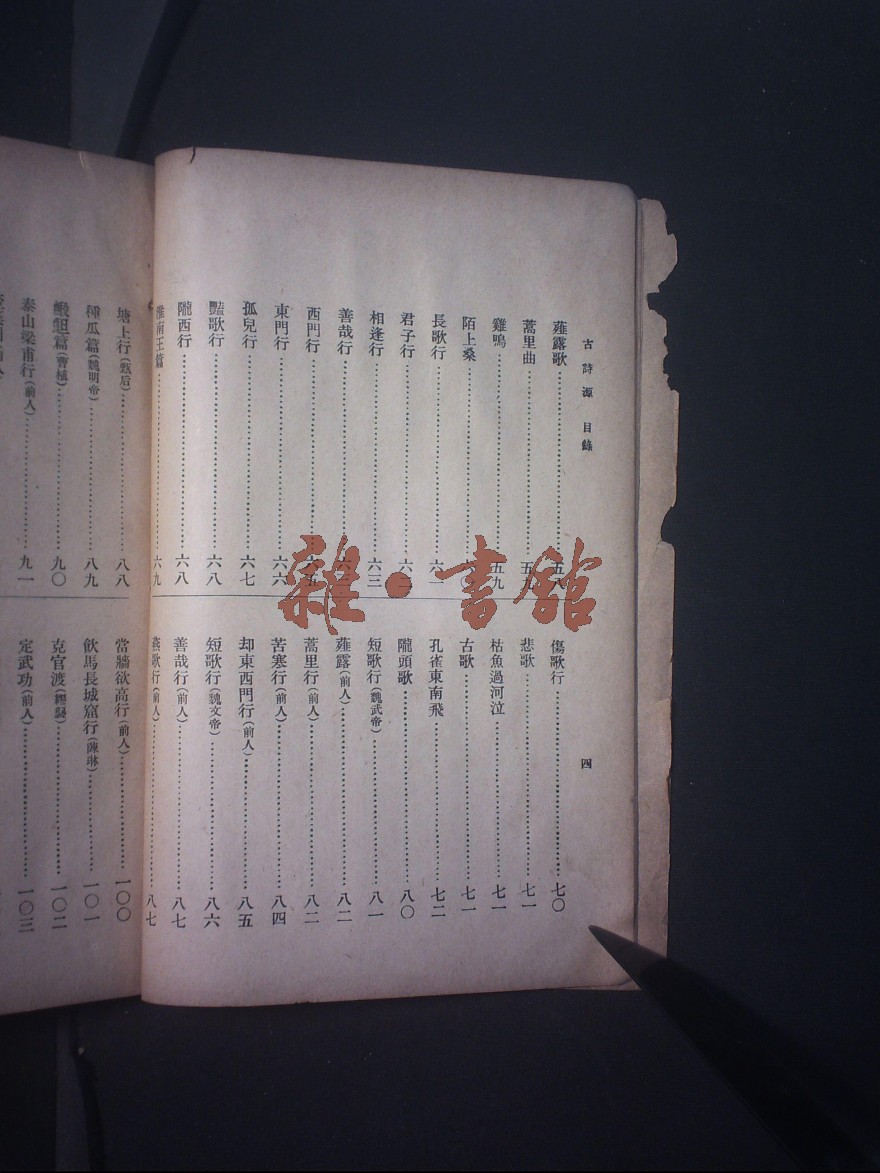 古詩源 目錄
四
薤露歌……五八
蒿里曲……五九
雞鳴……五九
陌上桑
長歌行……六一
君子行……六二
相逢行……六三
善哉行
西門行……六五
東門行……六六
孤兒行……六七
豔歌行……六八
隴西行……六八
淮南王篇……六九
傷歌行……七〇
悲歌……七一
枯魚過河泣……七一
古歌……七一
孔雀東南飛……七二
隴頭歌……八〇
短歌行(魏武帝)……八一
薤露(前人)……八二
蒿里行(前人)……八二
苦寒行(前人)……八四
却東西門行(前人)……八五
短歌行(魏文帝)……八六
善哉行(前人)……八七
燕歌行(前人)……八七
塘上行(甄后)……八八
種瓜篇(魏明帝)……八九
䱇䱉篇(曹植)……九〇
泰山梁甫行(前人)……九一
當牆欲高行(前人)……一〇〇
飲馬長城窟行(陳琳)……一〇一
克官渡(繆襲)……一〇二
定武功(前人)……一〇三
雜·書館